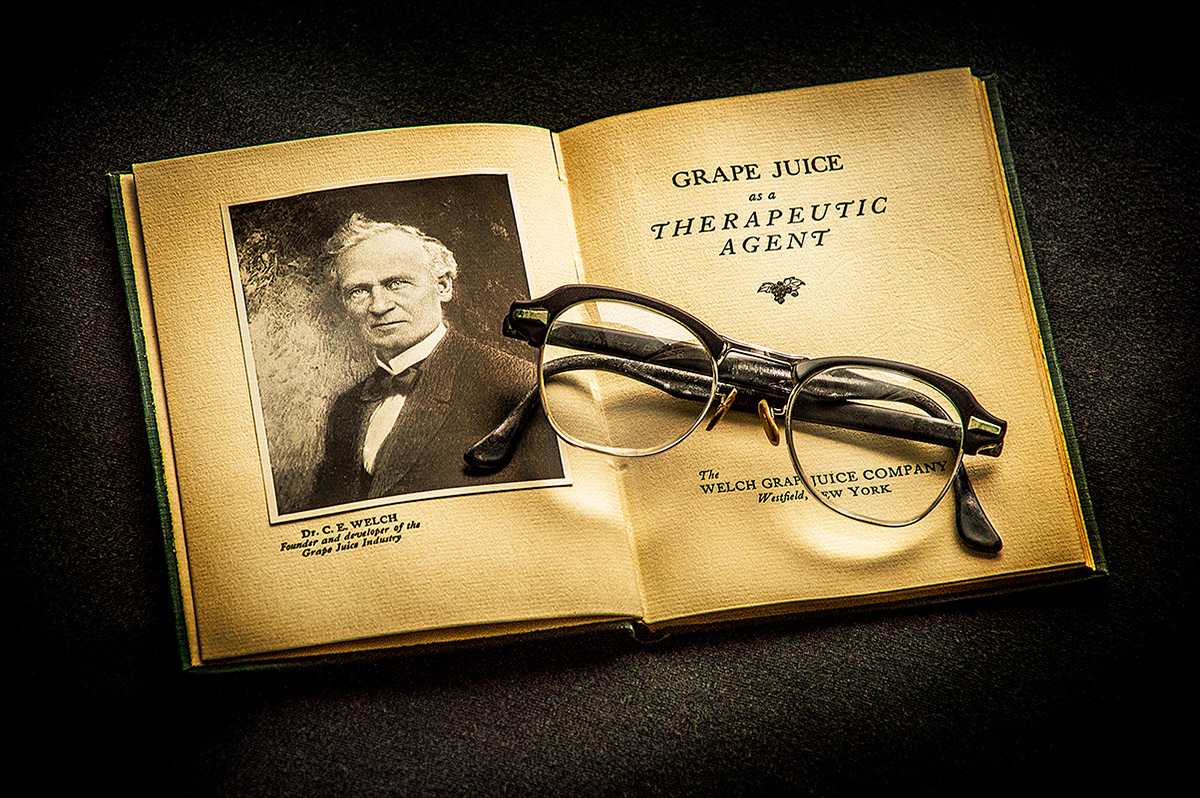 Dr. C. E. WELCH
Founder and developer of the
Grape Juice Industry
GRAPE JUICE
as a
THERAPEUTIC
AGENT
The
WELCH GRAPE JUICE COMPANY
Westfield, NEW YORK